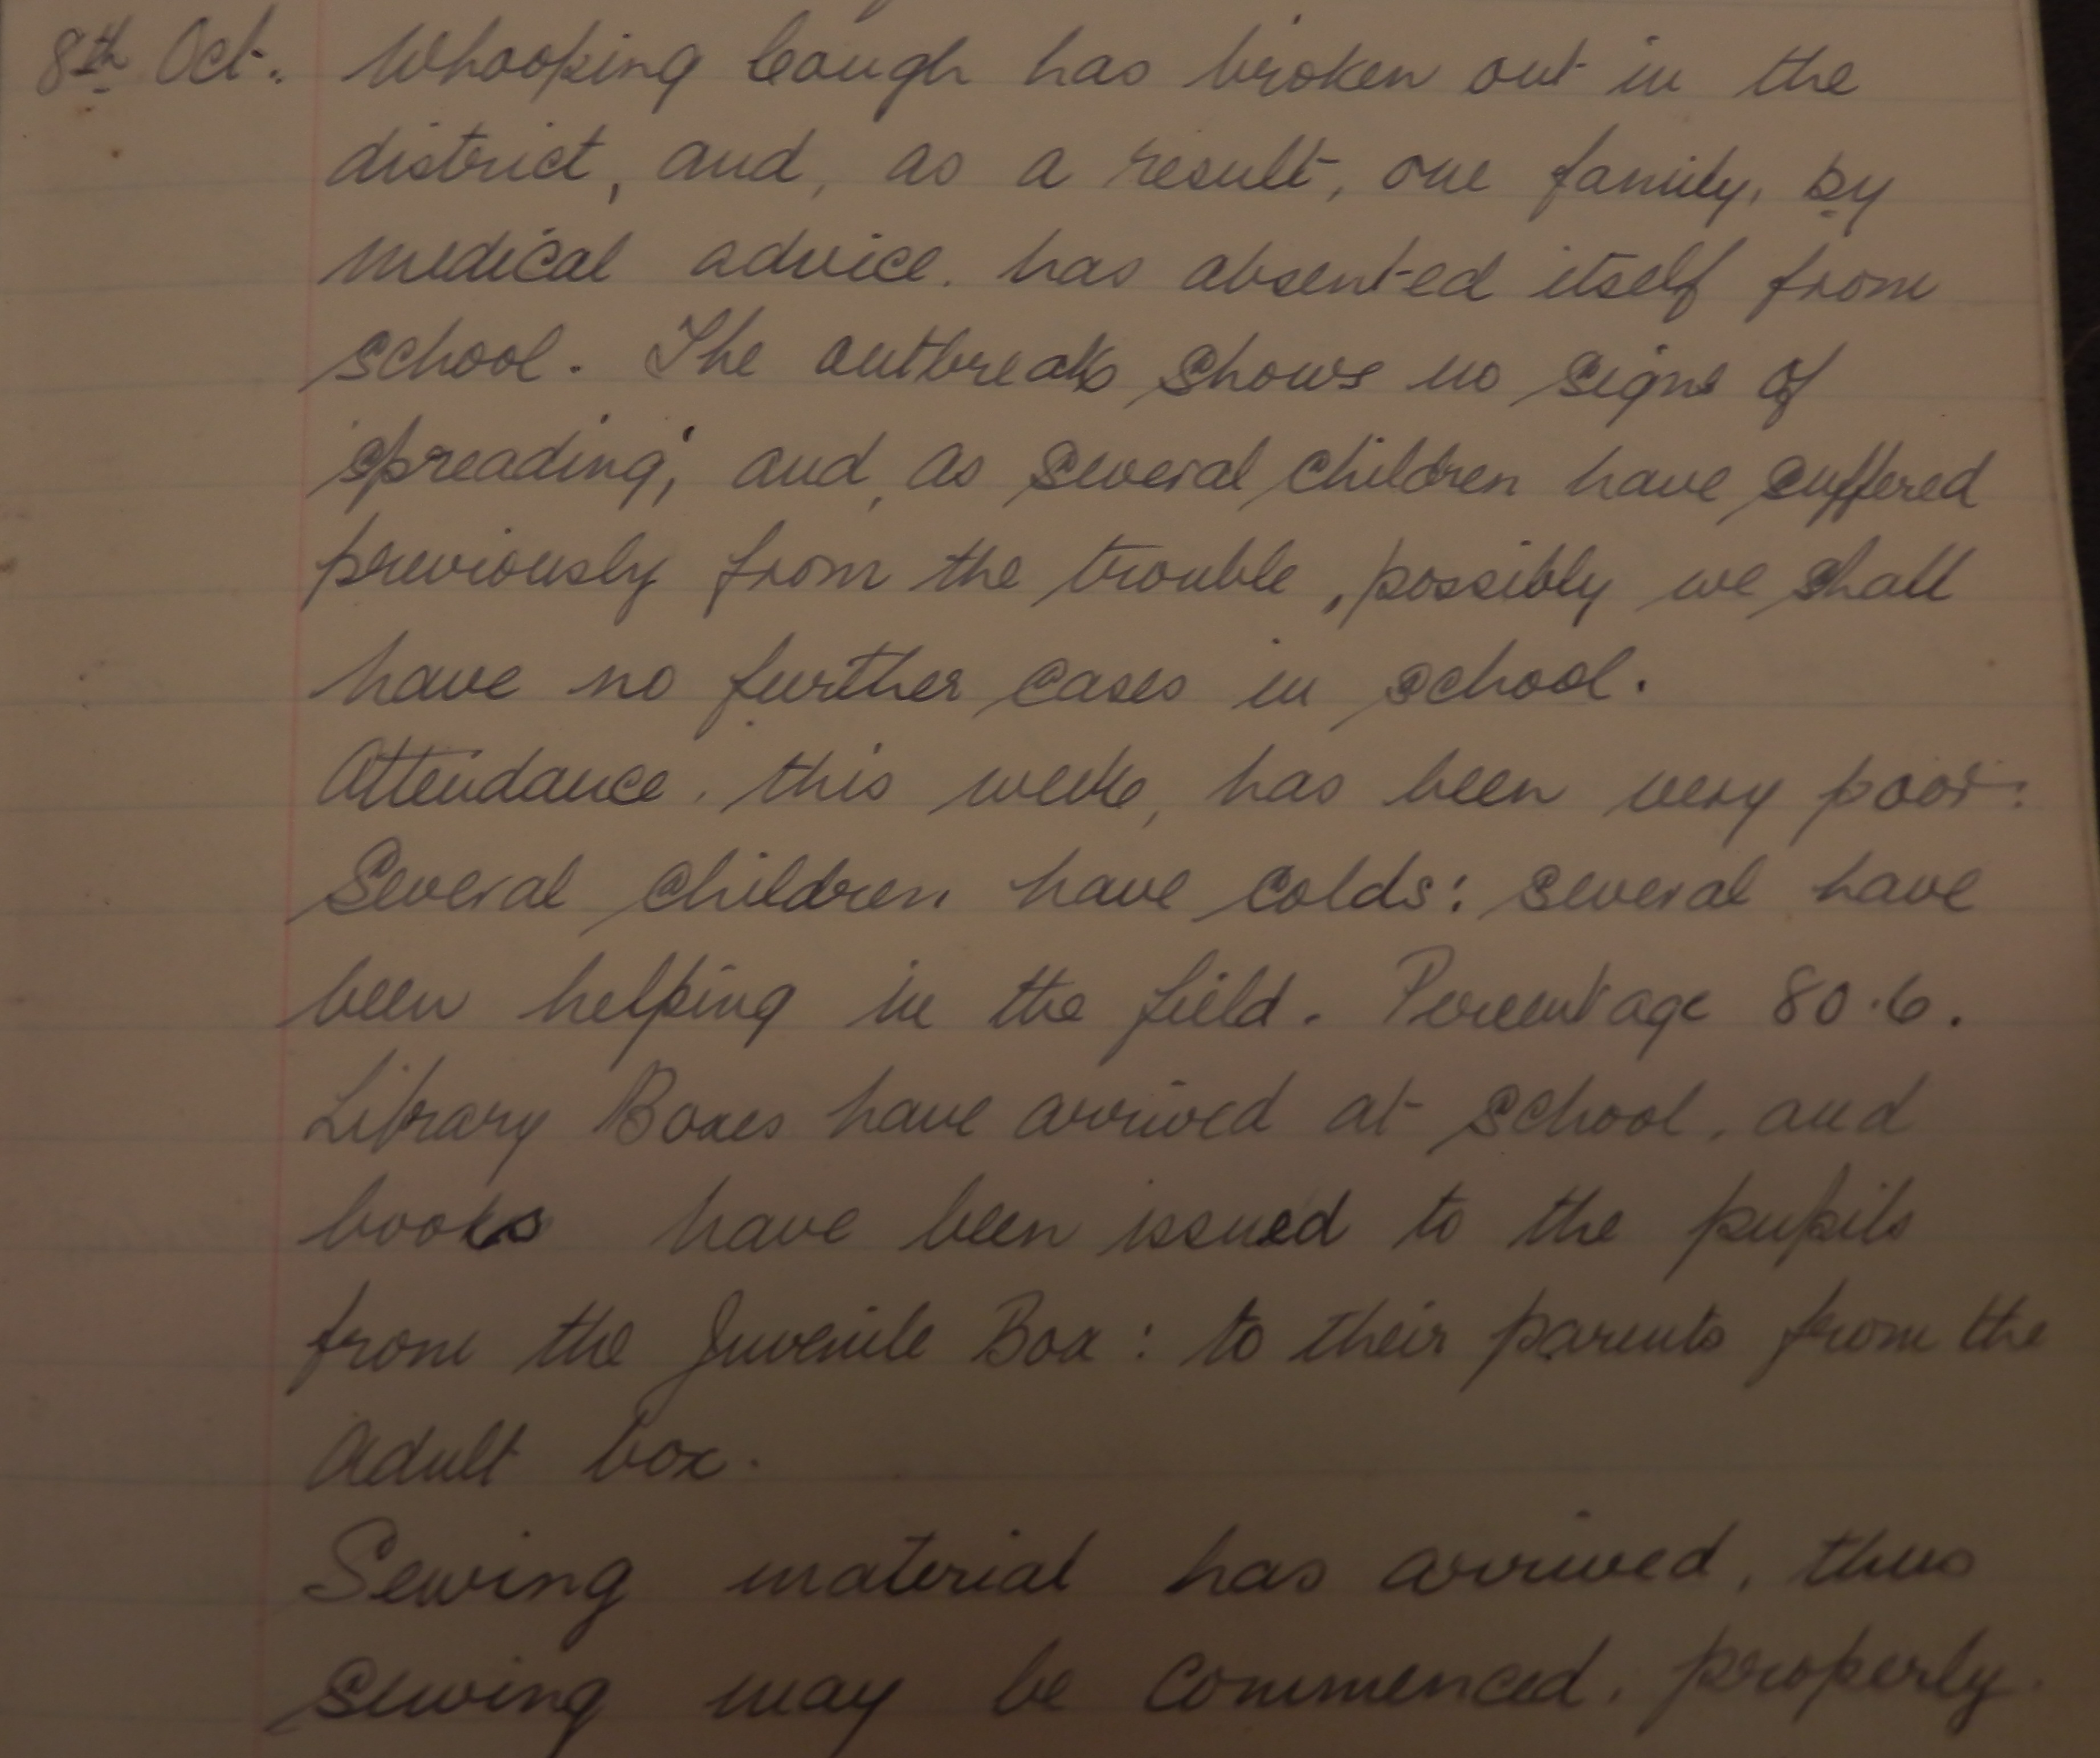 8th Oct. Whooping Cough has broken out in the
district, and, as a result, one family, by
medical advice, has absented itself from
school. The outbreak shows no signs of
'spreading'; and, as several children have suffered
previously from the trouble, possibly we shall
have no further cases in school.
Attendance, this week, has been very poor:
Several children have colds: several have
been helping in the field. Percentage 80.6.
Library Boxes have arrived at school, and
books have been issued to the pupils
from the Juvenile Box: to their parents from the
Adult box.
Sewing material has arrived, thus
sewing may be commenced, properly.